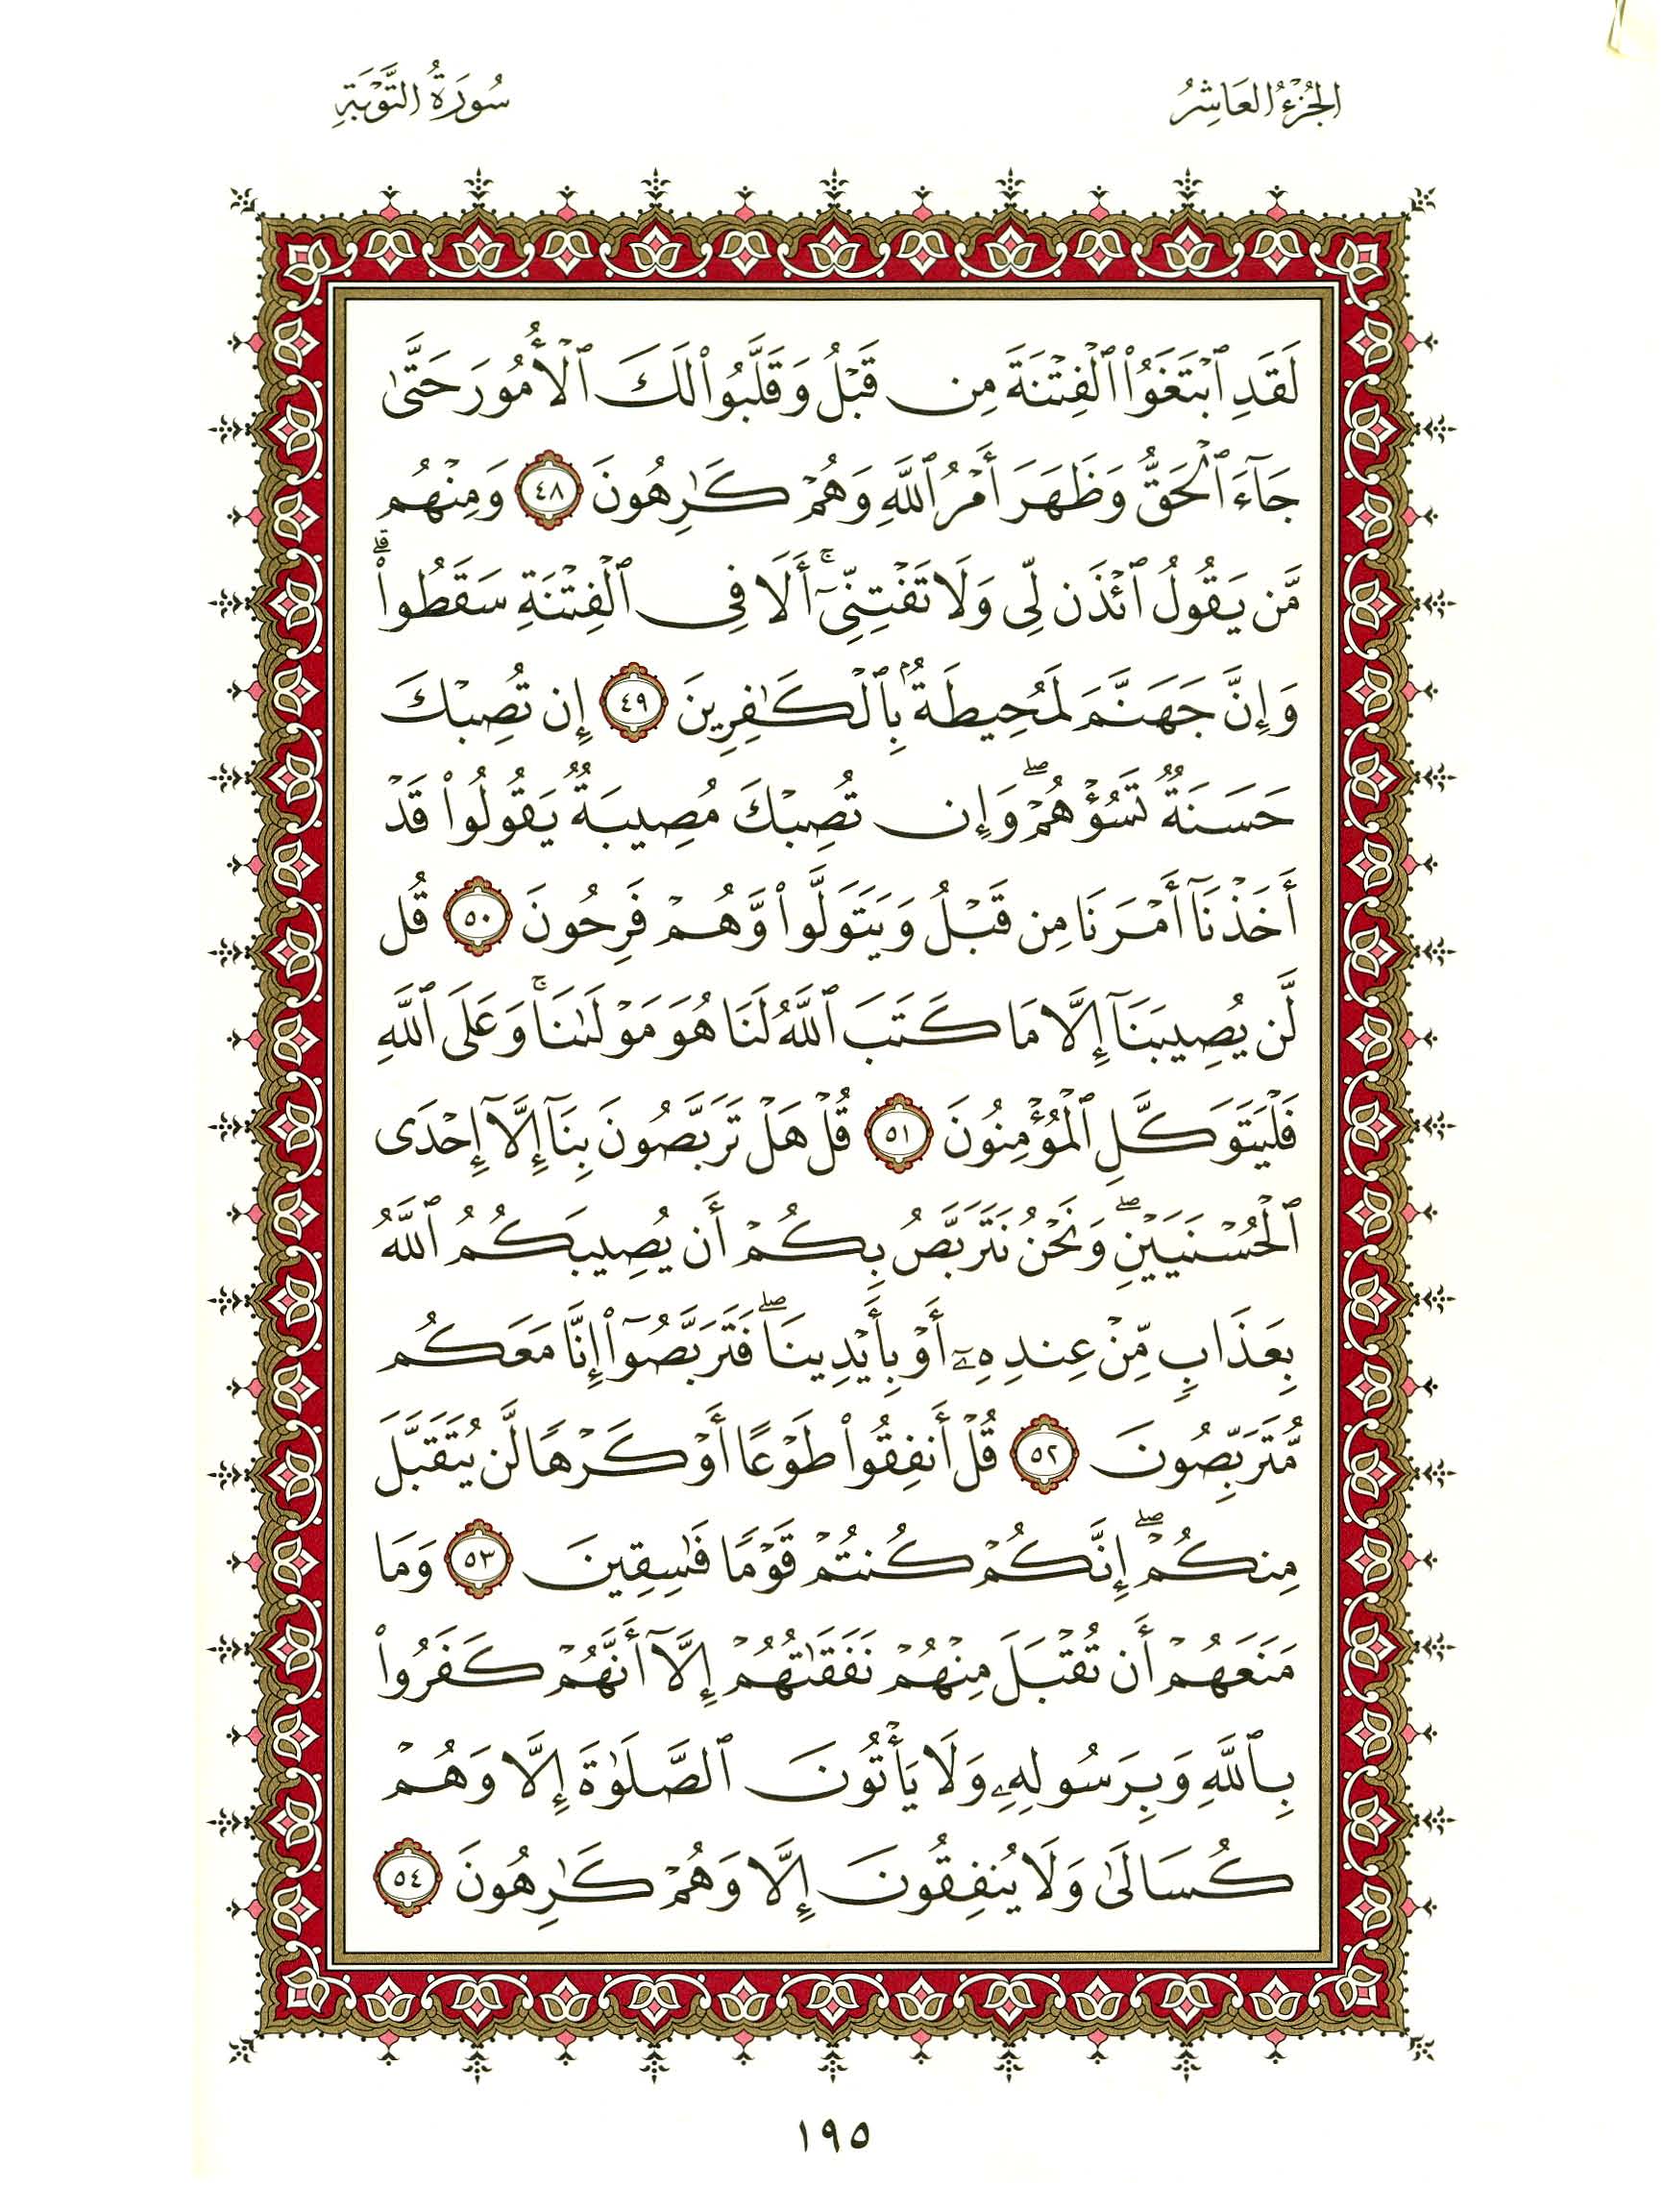 الجُزْءُ العَاشِرُ
سُورَةُ التَّوْبَةِ
لَقَدِ ٱبْتَغَوُا۟ ٱلْفِتْنَةَ مِن قَبْلُ وَقَلَّبُوا۟ لَكَ ٱلْأُمُورَ حَتَّىٰ
جَآءَ ٱلْحَقُّ وَظَهَرَ أَمْرُ ٱللَّهِ وَهُمْ كَـٰرِهُونَ ٤٨ وَمِنْهُم
مَّن يَقُولُ ٱئْذَن لِّى وَلَا تَفْتِنِّىٓ ۚ أَلَا فِى ٱلْفِتْنَةِ سَقَطُوا۟ ۗ
وَإِنَّ جَهَنَّمَ لَمُحِيطَةٌۢ بِٱلْكَـٰفِرِينَ ٤٩ إِن تُصِبْكَ
حَسَنَةٌ تَسُؤْهُمْ ۖ وَإِن تُصِبْكَ مُصِيبَةٌ يَقُولُوا۟ قَدْ
أَخَذْنَآ أَمْرَنَا مِن قَبْلُ وَيَتَوَلَّوا۟ وَّهُمْ فَرِحُونَ ٥٠ قُل
لَّن يُصِيبَنَآ إِلَّا مَا كَتَبَ ٱللَّهُ لَنَا هُوَ مَوْلَىٰنَا ۚ وَعَلَى ٱللَّهِ
فَلْيَتَوَكَّلِ ٱلْمُؤْمِنُونَ ٥١ قُلْ هَلْ تَرَبَّصُونَ بِنَآ إِلَّآ إِحْدَى
ٱلْحُسْنَيَيْنِ ۖ وَنَحْنُ نَتَرَبَّصُ بِكُمْ أَن يُصِيبَكُمُ ٱللَّهُ
بِعَذَابٍ مِّنْ عِندِهِۦٓ أَوْ بِأَيْدِينَا ۖ فَتَرَبَّصُوٓا۟ إِنَّا مَعَكُم
مُّتَرَبِّصُونَ ٥٢ قُلْ أَنفِقُوا۟ طَوْعًا أَوْ كَرْهًا لَّن يُتَقَبَّلَ
مِنكُمْ ۖ إِنَّكُمْ كُنتُمْ قَوْمًا فَـٰسِقِينَ ٥٣ وَمَا
مَنَعَهُمْ أَن تُقْبَلَ مِنْهُمْ نَفَقَـٰتُهُمْ إِلَّآ أَنَّهُمْ كَفَرُوا۟
بِٱللَّهِ وَبِرَسُولِهِۦ وَلَا يَأْتُونَ ٱلصَّلَوٰةَ إِلَّا وَهُمْ
كُسَالَىٰ وَلَا يُنفِقُونَ إِلَّا وَهُمْ كَـٰرِهُونَ ٥٤
١٩٥